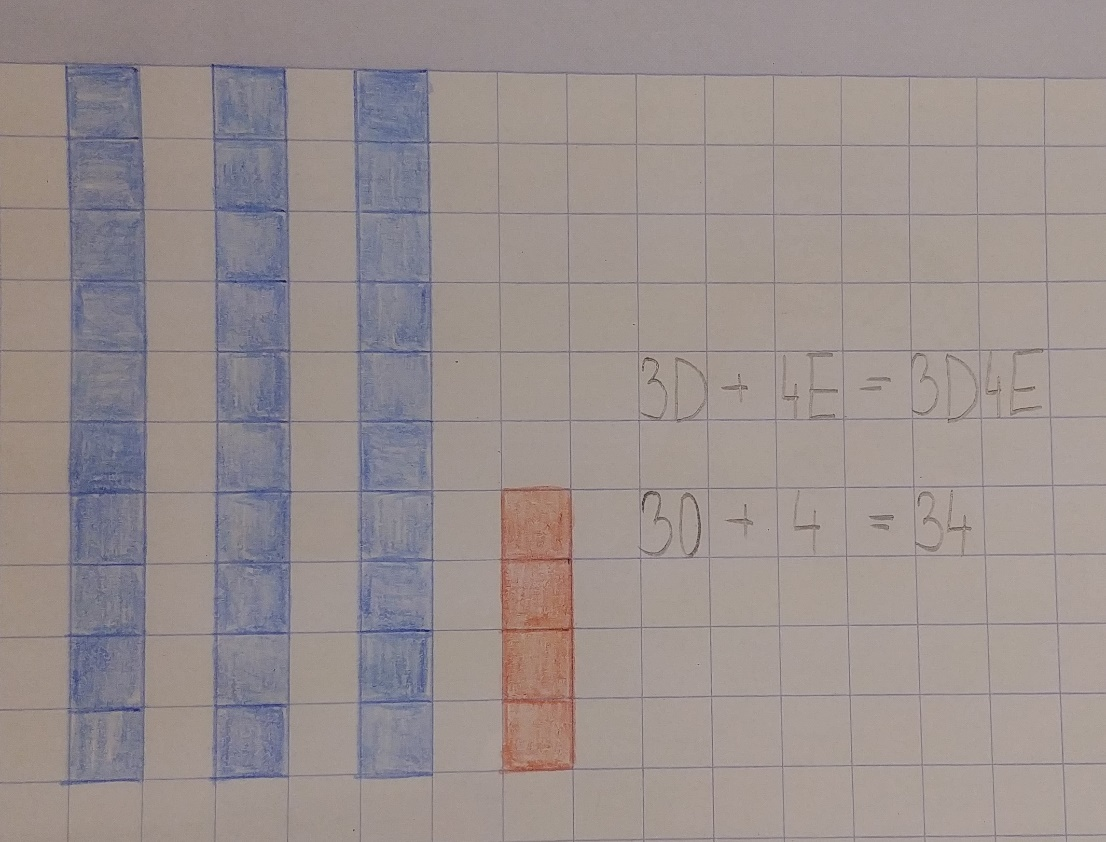 3D + 4E = 3D4E
30 + 4 = 34